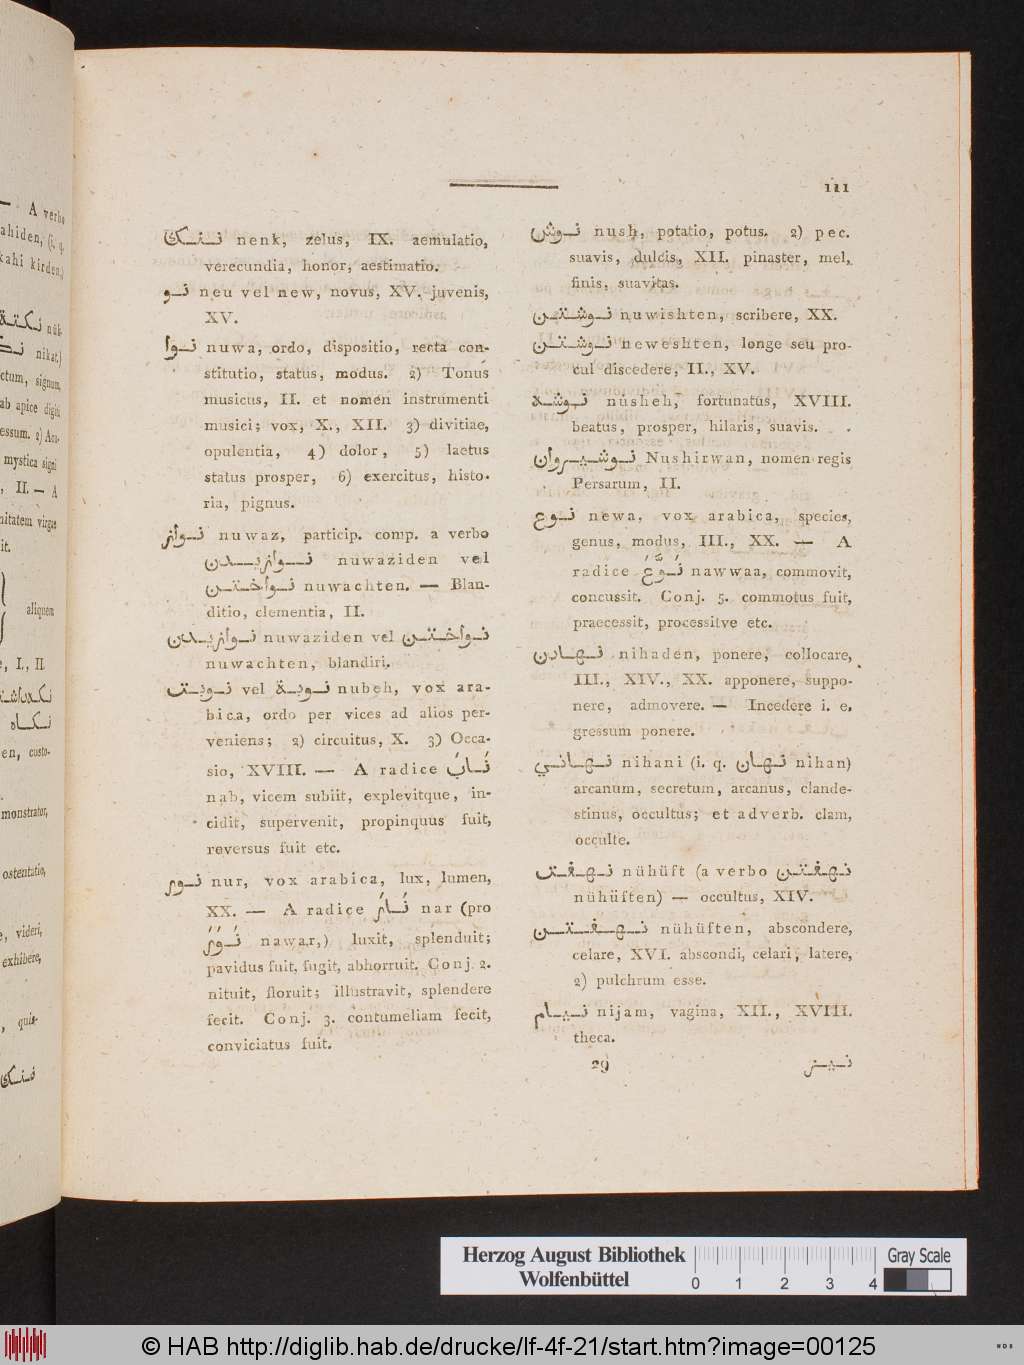 — A verbo
ahiden, (i. q.
kahi kirden,)
نكتة nük-
nikat.)
ctum, signum,
ab apice digiti
essum. 2) Acu-
mystica signi
, II. — A
nitatem virgae
it.
aliquem
, I., II.
نكاه
en, custo-
monstrator,
ostentatio,
videri,
exhibere,
, quis-
111
ننك nenk, zelus, IX. aemulatio,
verecundia, honor, aestimatio.
نو neu vel new, novus, XV. juvenis,
XV.
نوا nuwa, ordo, dispositio, recta con-
stitutio, status, modus. 2) Tonus
musicus, II. et nomen instrumenti
musici; vox, X., XII. 3) divitiae,
opulentia, 4) dolor, 5) laetus
status prosper, 6) exercitus, histo-
ria, pignus.
نواز nuwaz, particip. comp. a verbo
نوازيدن nuwaziden vel
نواختن nuwachten. — Blan-
ditio, clementia, II.
نوازيدن nuwaziden vel نواختن
nuwachten, blandiri.
نوبت vel نوبة nubeh, vox ara-
bica, ordo per vices ad alios per-
veniens; 2) circuitus, X. 3) Occa-
sio, XVIII. — A radice نَابَ
nab, vicem subiit, explevitque, in-
cidit, supervenit, propinquus fuit,
reversus fuit etc.
نور nur, vox arabica, lux, lumen,
XX. — A radice نَارَ nar (pro
نَوَرَ nawar,) luxit, splenduit;
pavidus fuit, fugit, abhorruit. Conj. 2.
nituit, floruit; illustravit, splendere
fecit. Conj. 3. contumeliam fecit,
conviciatus fuit.
نوش nush, potatio, potus. 2) pec.
suavis, dulcis, XII. pinaster, mel,
finis, suavitas.
نوشتن nuwishten, scribere, XX.
نوشتن neweshten, longe seu pro-
cul discedere, II., XV.
نوشه nüsheh, fortunatus, XVIII.
beatus, prosper, hilaris, suavis.
نوشيروان Nushirwan, nomen regis
Persarum, II.
نوع newa, vox arabica, species,
genus, modus, III., XX. — A
radice نَوَّعَ nawwaa, commovit,
concussit. Conj. 5. commotus fuit,
praecessit, processitve etc.
نهادن nihaden, ponere, collocare,
III., XIV., XX. apponere, suppo-
nere, admovere. — Incedere i. e.
gressum ponere.
نهاني nihani (i. q. نهان nihan)
arcanum, secretum, arcanus, clande-
stinus, occultus; et adverb. clam,
occulte.
نهفت nühüft (a verbo نهفتن
nühüften) — occultus, XIV.
نهفتن nühüften, abscondere,
celare, XVI. abscondi, celari, latere,
2) pulchrum esse.
نيام nijam, vagina, XII., XVIII.
theca.
29 نيز
Herzog August Bibliothek
Wolfenbüttel
0 1 2 3 4
Gray Scale
© HAB http://diglib.hab.de/drucke/lf-4f-21/start.htm?image=00125